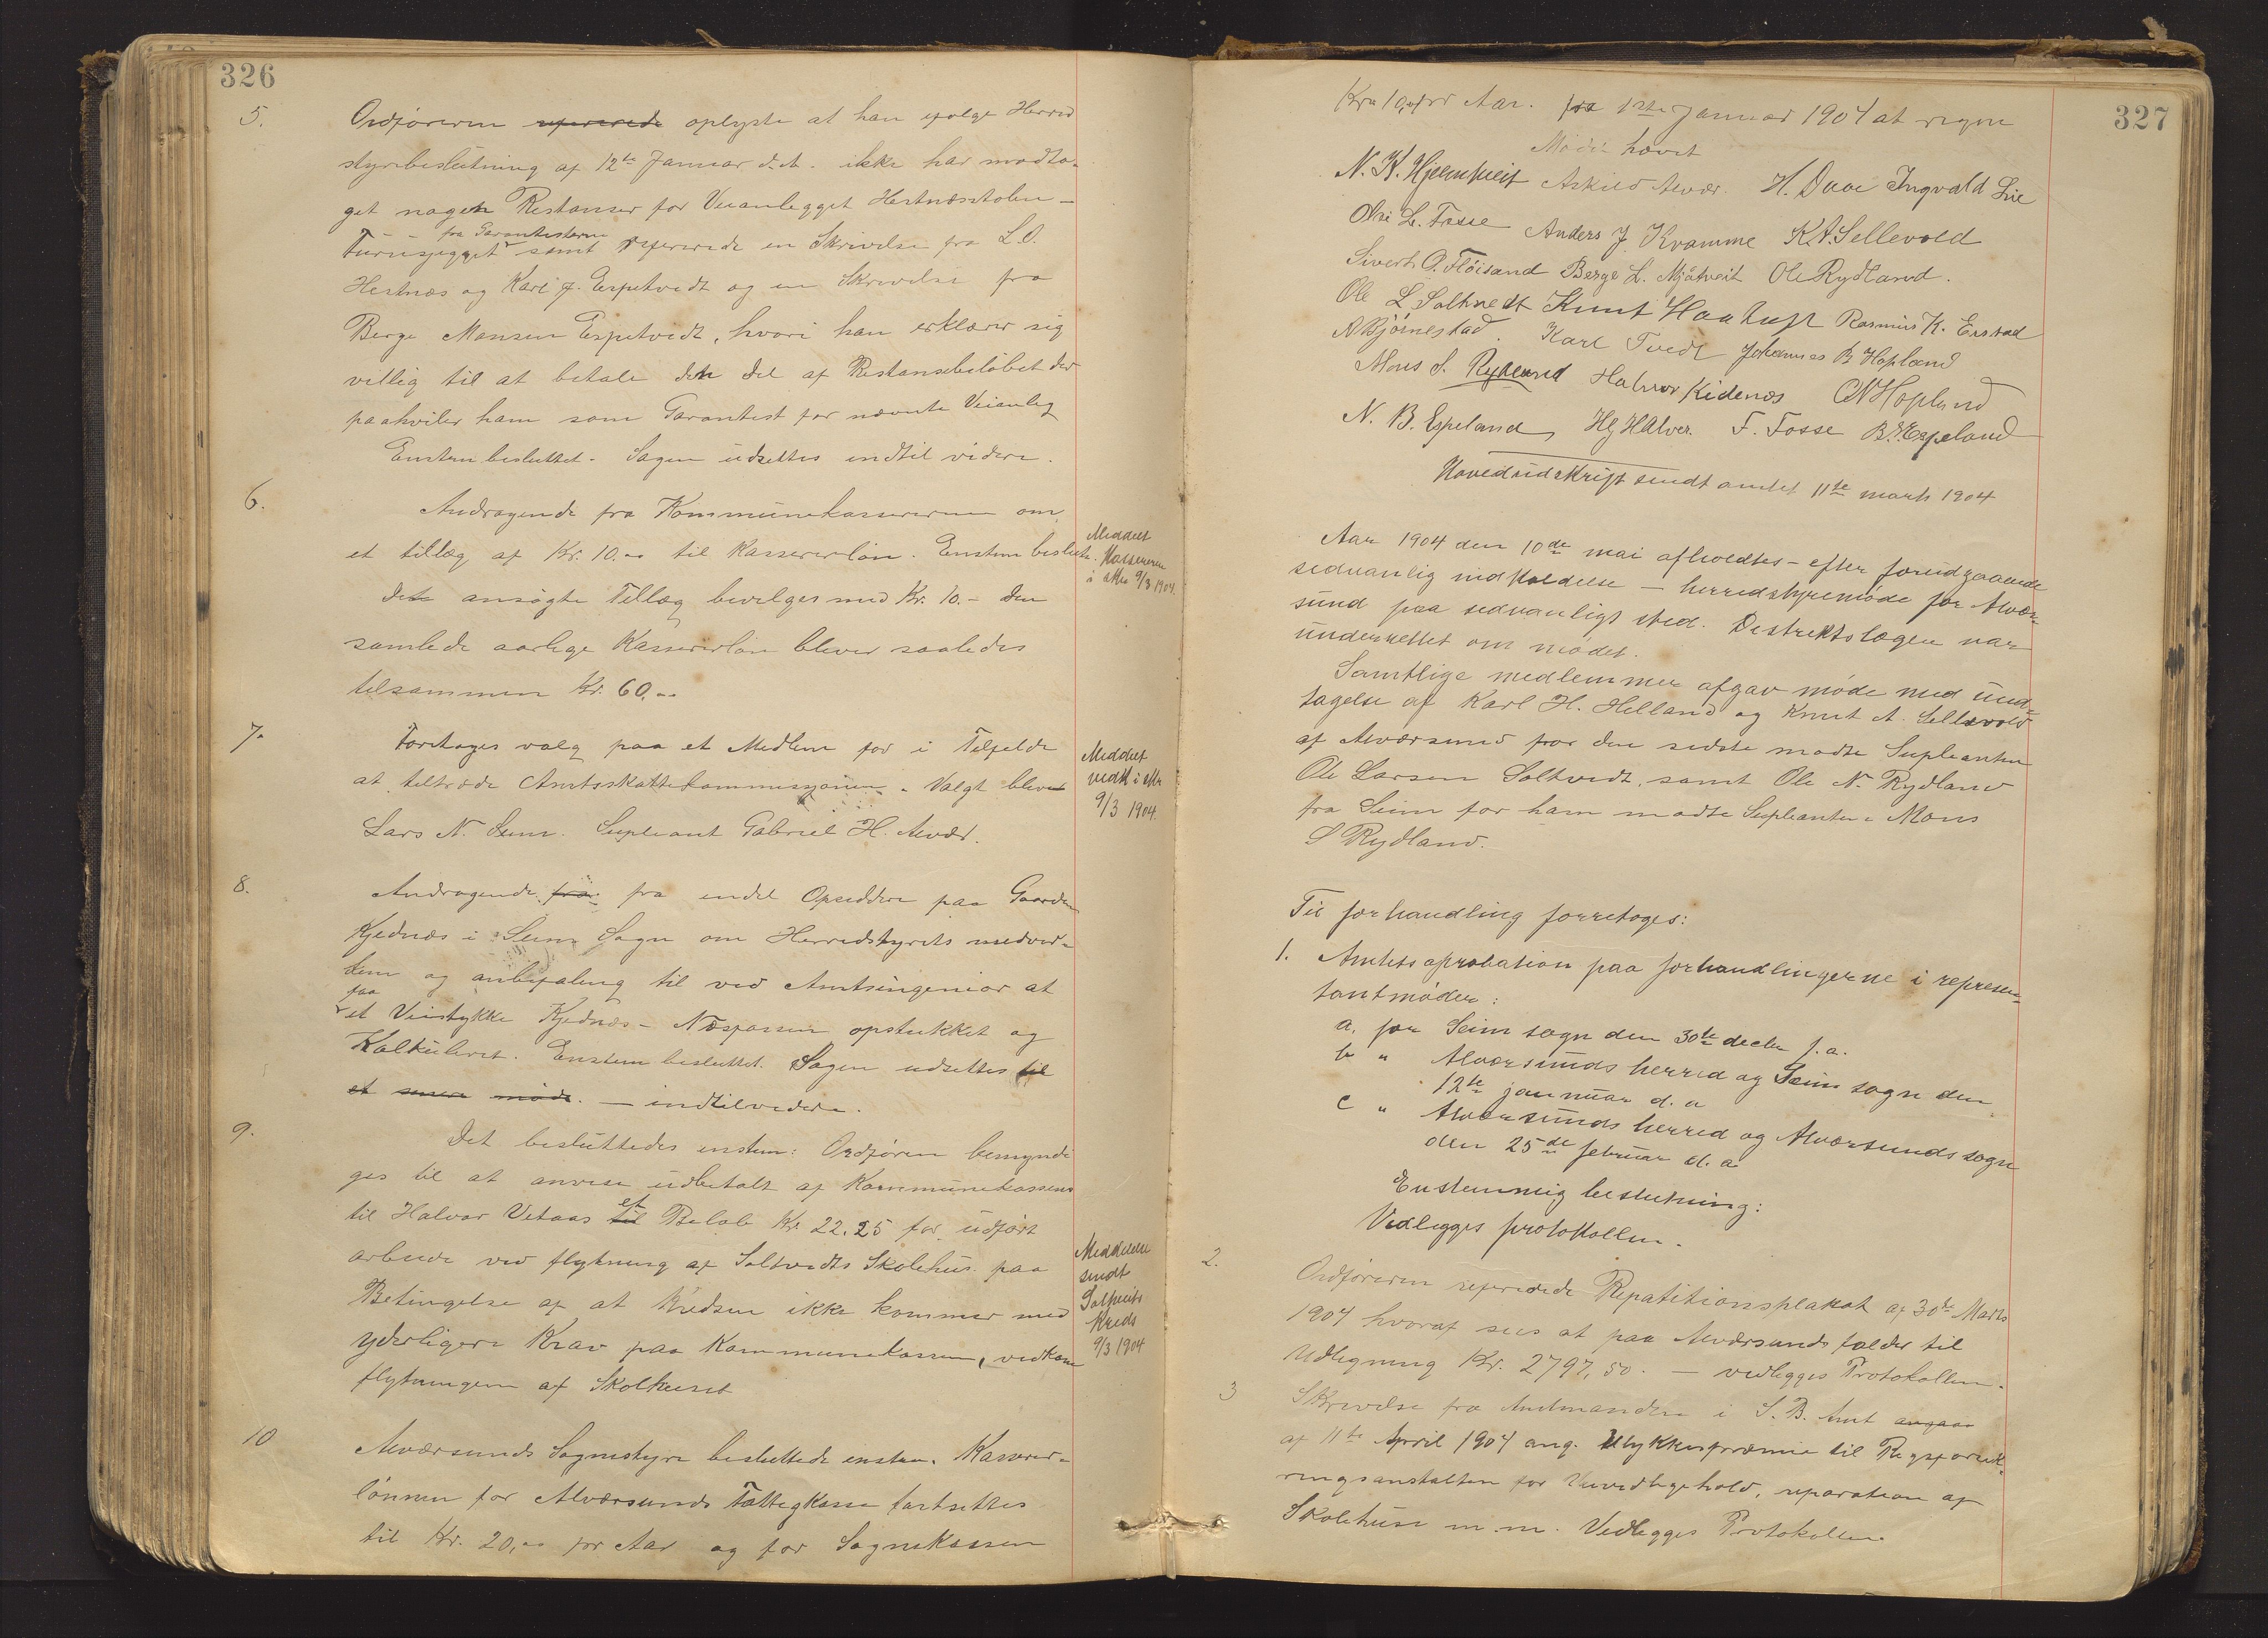 326
5. Ordføreren refererede oplyste at han ifølge Herred
styrebeslutning af 12te Januar d.A. ikke har modta-
get nogen Restanser for Veianlegget Hestnæsstølen -
fra Garantisterne
Furuskjegget samt refererede en Skrivelse fra L.O.
Hestnæs og Karl J. Espetvedt og en Skrivelse fra
Berge Monsen Espetvedt, hvori han erklærer sig
villig til at betale den del af Restansebeløbet der
paahviler ham som Garantist for nævnte Veianleg
Enstem besluttet. Sagen udsettes indtil videre.
6. Andragende fra Kommunekassereren om
et tillæg af Kr. 10.00 til Kassererløn. Enstem beslutt.
Det ansøgte Tillæg bevilges med Kr. 10.- Den
samlede aarlige Kassererløn bliver saaledes
tilsammen Kr. 60.00
Meddelt
Kassereren
i skr 9/3 1904.
7. Foretages valg paa et Medlem for i Tilfelde
at tiltræde Amtsskattekommissjonen. Valgt blevet
Lars N. Seim. Supleant Gabriel H. Alvær.
Meddelt
vedk i skr
9/3 1904.
8. Andragende fra fra endel Opsiddere paa Gaarden
Kjednæs i Seim Sogn om Herredstyrets medvir-
ken og anbefaling til ved Amtsingeniør at
paa
et Veistykke Kjednæs - Næspassen opstukket og
Kalkuleret. Enstem besluttet. Sagen udsettes til
et senere møde. - indtilvidere.
9. Det besluttedes enstem: Ordføren bemyndi
ges til at anvise udbetalt af Kommunekassen
til Halvor Vetaas til et Beløb Kr. 22.25 for udført
arbeide ved flytning af Soltvedts Skolehus paa
Betingelse af at Kredsen ikke kommer med
yderligere Krav paa Kommunekassen, vedkom
flytningen af Skolhuset
Meddelelse
sendt
Soltveits
Kreds
9/3 1904
10 Alværsunds Sognestyre besluttede enstem. Kasserer-
lønnen for Alværsunds Fattigkasse fastsettes
til Kr. 20,00 pr Aar og for Sognekassen
327
Kr. 10,00 pr Aar. fra 1ste Januar 1904 at regne
Mødet hævet
N. K. Hjelmtveit Askild Alvær. H. Daae Ingvald Lie
Olai L. Fosse Anders J. Kvamme K A. Sellevold
Sivert O. Fløisand Berge L. Mjåtveit Ole Rydland.
Ole L Soltvedt Knut Haukaas Rasmus K. Erstad
A Bjørnestad. Karl Tvedt Johannes B Hopland
Mons S. Rydland Halvor Kidenæs O N Hopland
N. B. Espeland HJ HAlver. F. Fosse B. Espeland
Hovedudskrift sendt amtet 11te marts 1904
Aar 1904 den 10de mai afholdtes - efter foreudgaaende
sedvanlig indkaldelse - herredstyremøde for Alvær-
sund paa sedvanligt sted. Distriktslægen var
underrettet om mødet.
Samtlige medlemmer afgav møde med und-
tagelse af Karl H. Helland og Knut A. Sellevold
af Alværsund for den sidste mødte Supleanten
Ole Larsen Soltvedt, samt Ole N. Rydland
fra Seim for ham mødte Supleanten Mons
S Rydland.
Til forhandling foretoges:
1. Amtets aprobation paa forhandlingerne i represen-
tantmøder:
a. for Seim sogn den 30te decbr f.a.
b " Alværsunds herred og Seim sogn den
12te januar d. a
c " Alværsunds herred og Alværsunds sogn
den 25de februar d. a
Enstemmig beslutning:
Vedlegges protokollen.
2. Ordføreren refererede Repatitionsplakat af 30de Marts
1904 hvoraf sees at paa Alværsund falder til
Udligning Kr. 2797,50. - vedlegges Protokollen.
3 Skrivelse fra Amtmanden i S. B. Amt angaa
af 11te April 1904 ang. Ulykkespræmie til Rigsforsik-
ringsanstalten for Veivedligehold, reparation af
Skolehuse m.m. Vedlegges Protokollen.